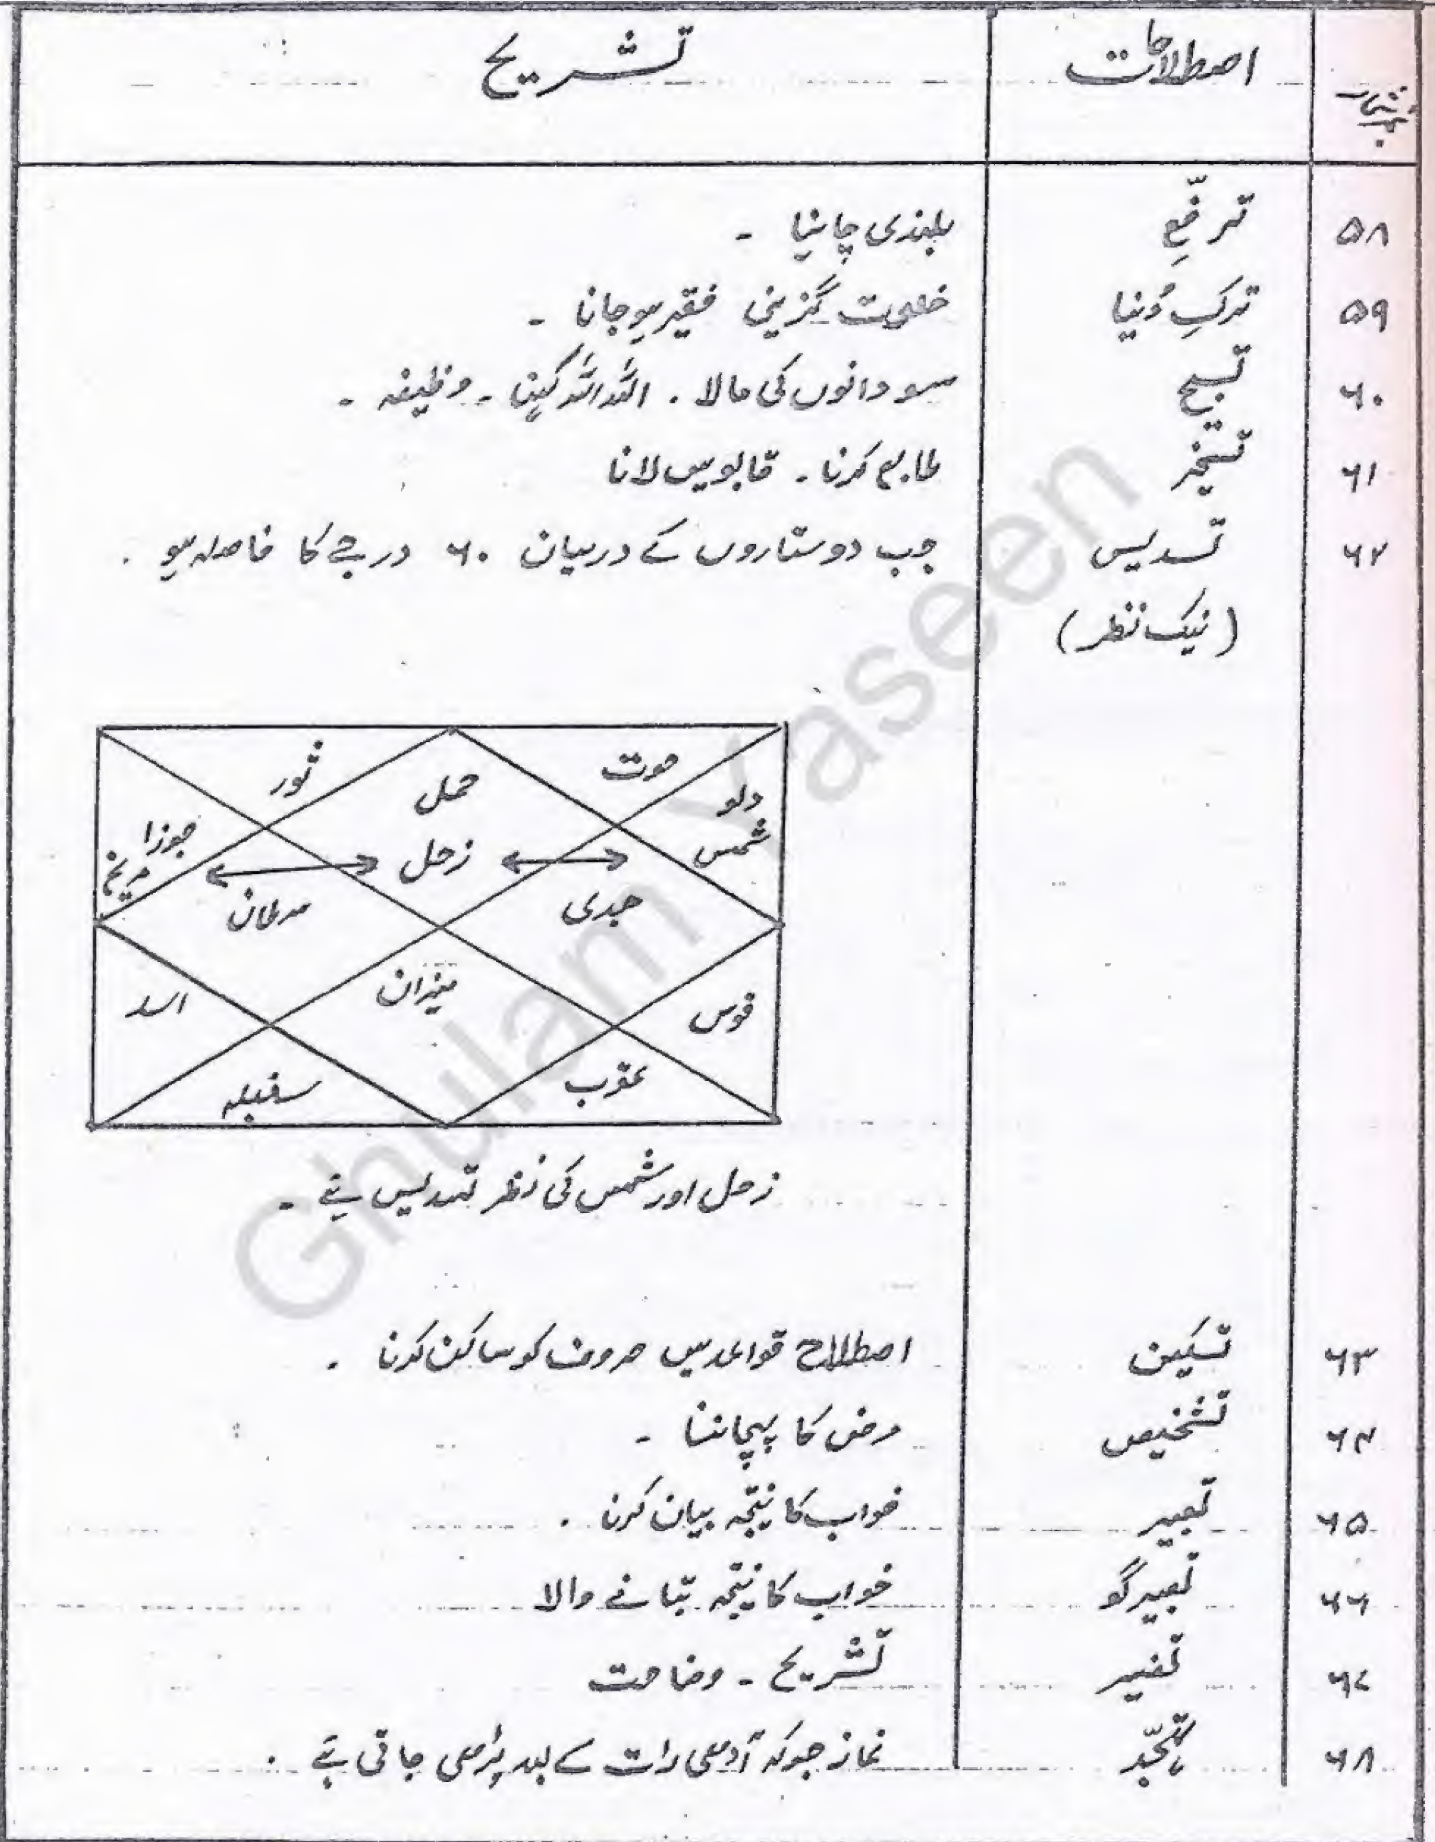 نمبر شمار اصطلاحات تشریح
۵۸ ترفّع بلندی چاہنا ۔
۵۹ ترکِ دُنیا خلوت گزینی فقیر ہو جانا ۔
۶۰ تسبیح سو دانوں کی مالا ۔ اللہ اللہ کہنا ۔ وظیفہ ۔
۶۱ تسخیر طابع کرنا ۔ قابو میں لانا
۶۲ تسدیس جب دو ستاروں کے درمیان ۶۰ درجے کا فاصلہ ہو ۔
(نیک نظر)
ثور حمل حوت دلو
جوزا مریخ زحل شمس
سرطان جدی
اسد میزان قوس
سنبلہ عقرب
زحل اور شمس کی نظر تسدیس ہے ۔
۶۳ تسکین اصطلاح قواعد میں حروف کو ساکن کرنا ۔
۶۴ تشخیص مرض کا پہچاننا ۔
۶۵ تعبیر خواب کا نتیجہ بیان کرنا ۔
۶۶ تعبیر گو خواب کا نتیجہ بتانے والا
۶۷ تفسیر تشریح ۔ وضاحت
۶۸ تہجّد نماز جو کہ آدھی رات کے بعد پڑھی جاتی ہے ۔
Ghulam Yaseen